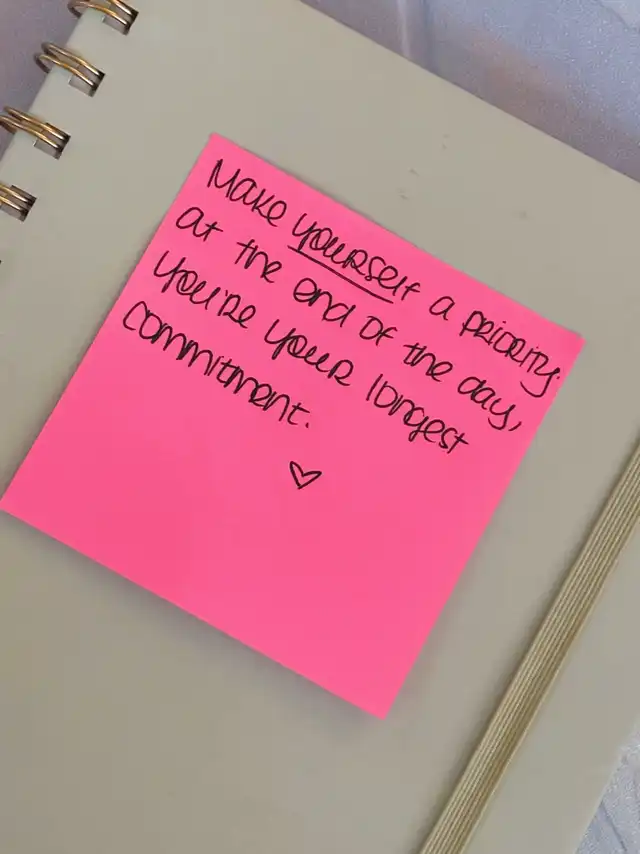 Make yourself a priority.
at the end of the day,
you're your longest
commitment.
♡